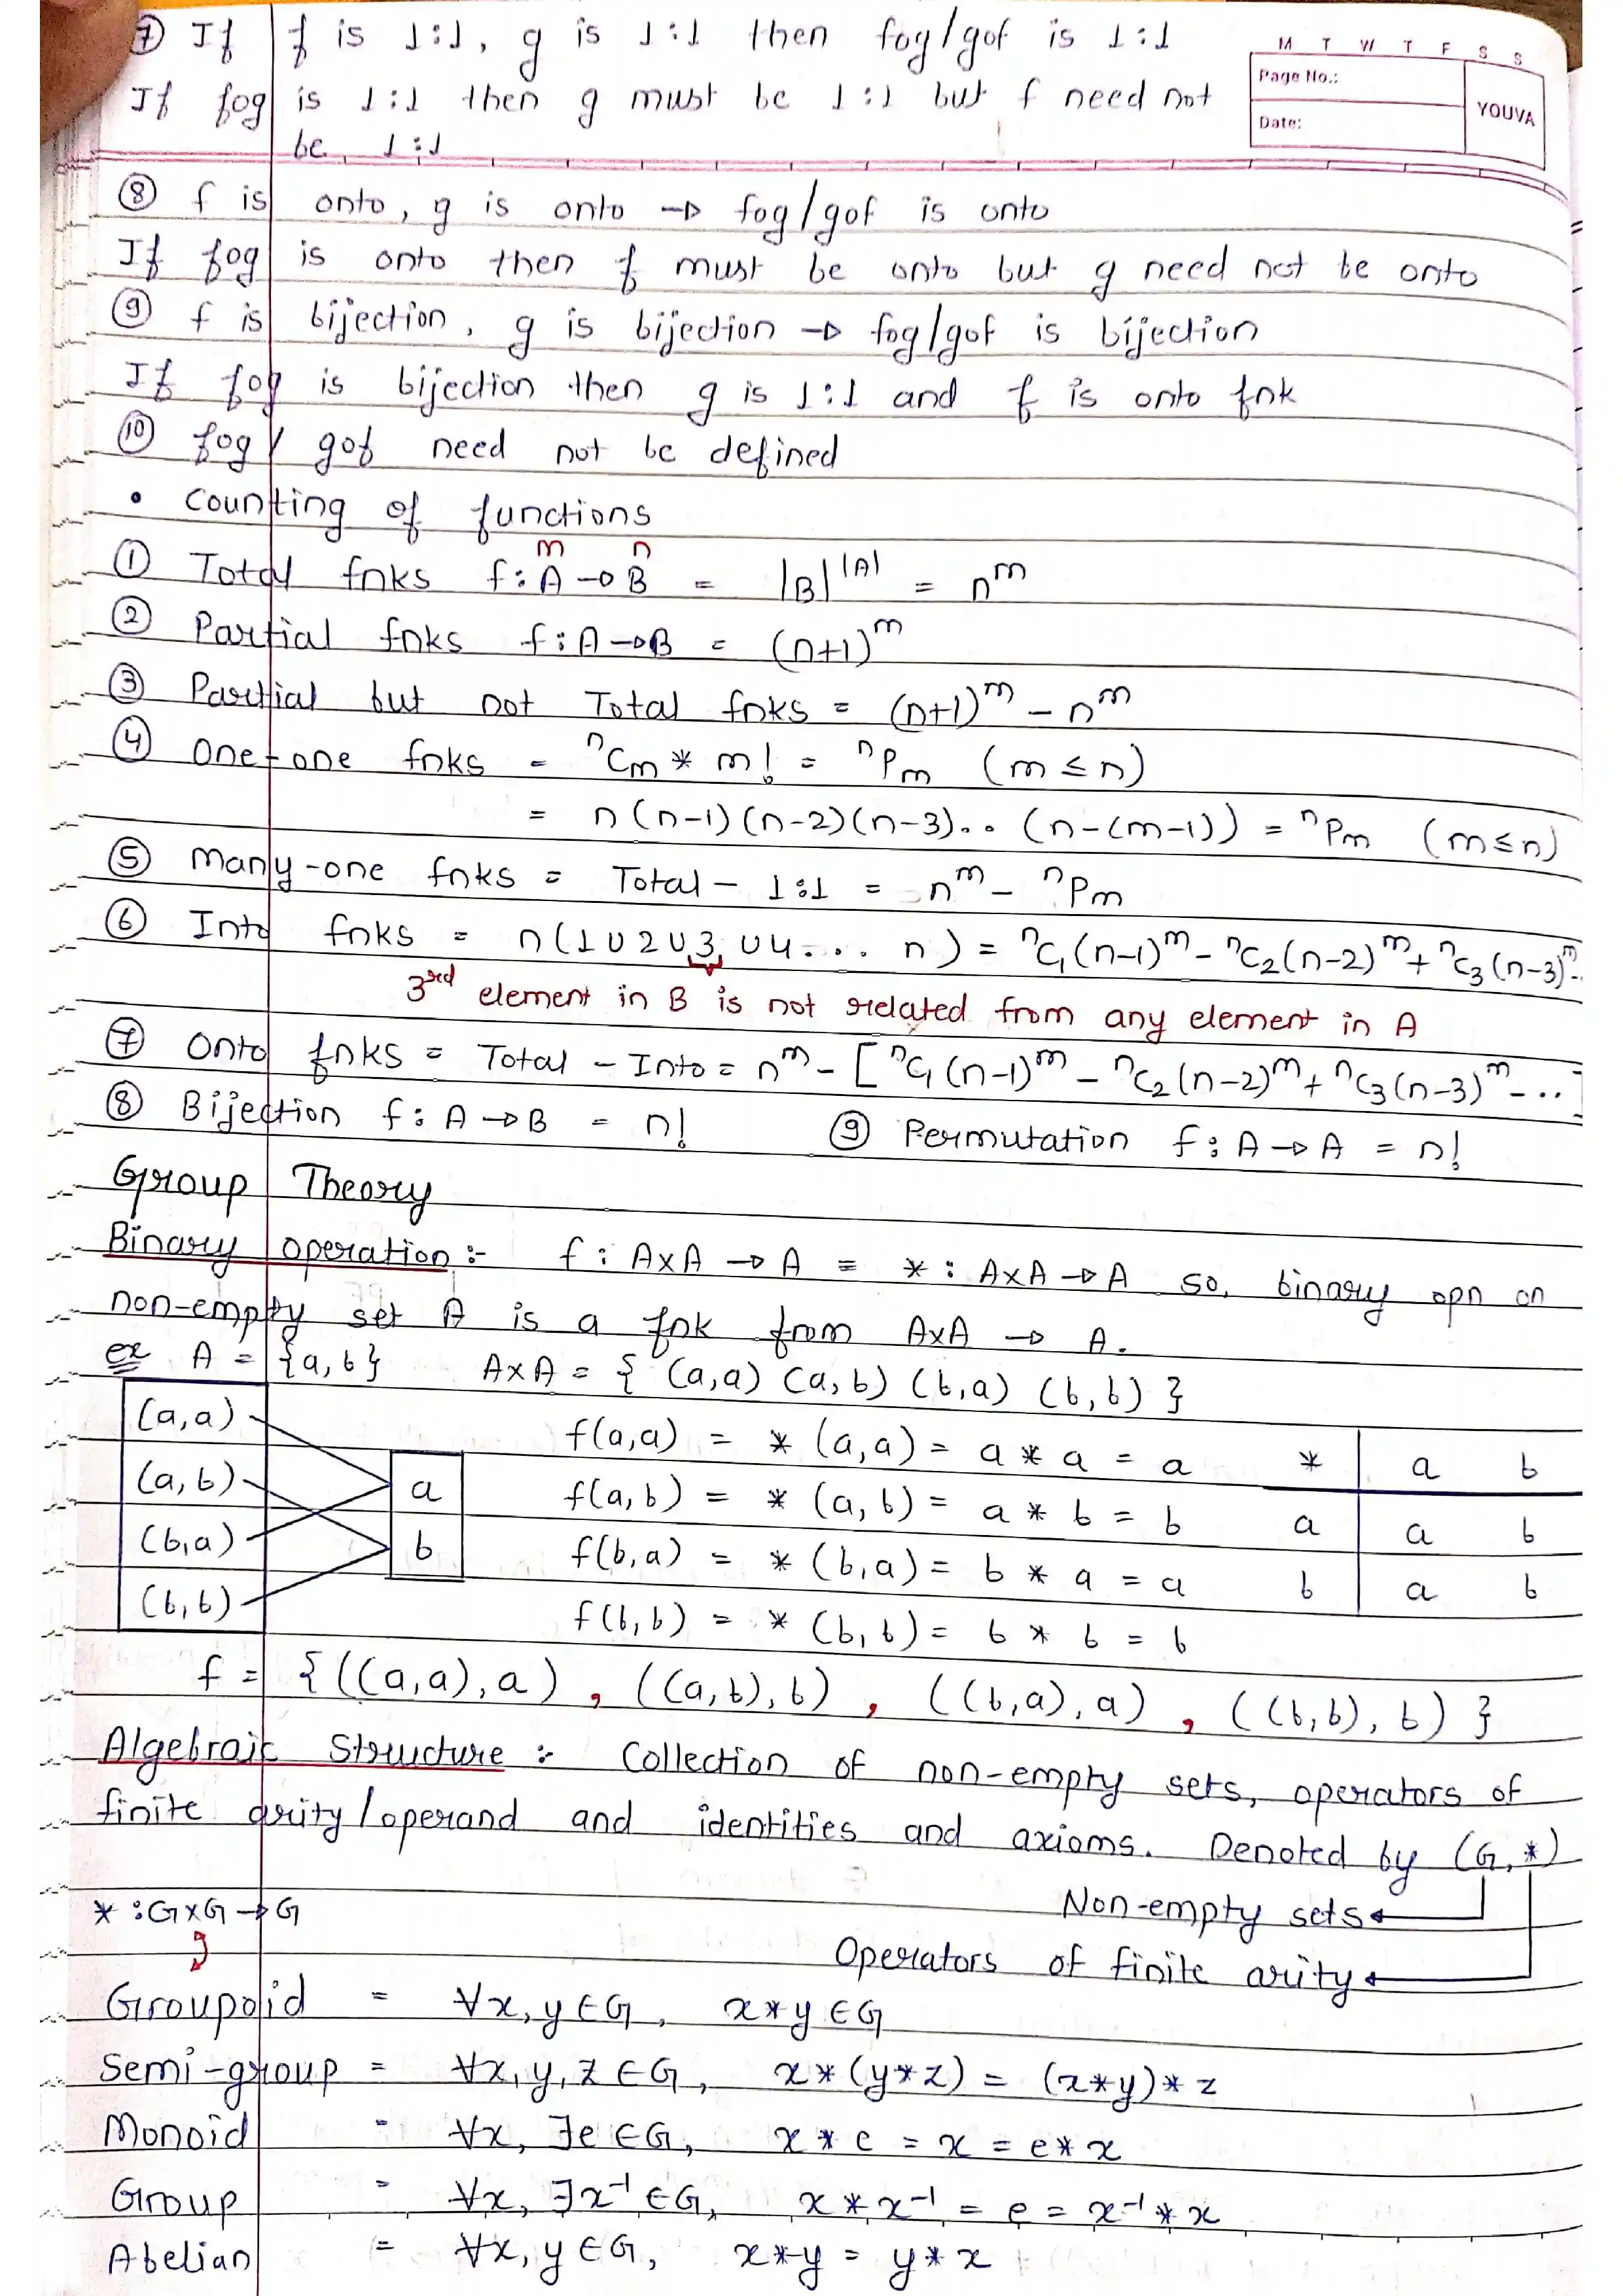 ⑦ If f is 1:1, g is 1:1 then fog/gof is 1:1
M T W T F S S
Page No.:
Date:
YOUVA
If fog is 1:1 then g must be 1:1 but f need not
be 1:1
⑧ f is onto, g is onto → fog/gof is onto
If fog is onto then f must be onto but g need not be onto
⑨ f is bijection, g is bijection → fog/gof is bijection
If fog is bijection then g is 1:1 and f is onto fnk
⑩ fog/ gof need not be defined
• Counting of functions
m n
① Total fnks f: A → B = |B|^|A| = n^m
② Partial fnks f: A → B = (n+1)^m
③ Partial but not Total fnks = (n+1)^m - n^m
④ One-one fnks = ⁿCm * m! = ⁿPm (m ≤ n)
= n(n-1)(n-2)(n-3).. (n-(m-1)) = ⁿPm (m≤n)
⑤ Many-one fnks = Total - 1:1 = n^m - ⁿPm
⑥ Into fnks = n(1∪2∪3∪4.... n) = ⁿC₁(n-1)^m - ⁿC₂(n-2)^m + ⁿC₃(n-3)^m..
3rd element in B is not related from any element in A
⑦ Onto fnks = Total - Into = n^m - [ⁿC₁(n-1)^m - ⁿC₂(n-2)^m + ⁿC₃(n-3)^m - ..]
⑧ Bijection f: A → B = n! ⑨ Permutation f: A → A = n!
Group Theory
Binary operation :- f: A×A → A = *: A×A → A so, binary opn on
non-empty set A is a fnk from A×A → A.
ex A = {a, b} A×A = { (a,a) (a,b) (b,a) (b,b) }
(a,a)
(a,b)
(b,a)
(b,b)
a
b
f(a,a) = * (a,a) = a * a = a
f(a,b) = * (a,b) = a * b = b
f(b,a) = * (b,a) = b * a = a
f(b,b) = * (b,b) = b * b = b
* a b
a a b
b a b
f = {((a,a),a) , ((a,b),b) , ((b,a),a) , ((b,b),b) }
Algebraic Structure :- Collection of non-empty sets, operators of
finite arity/operand and identities and axioms. Denoted by (G,*)
* : G×G → G
Non-empty sets
Operators of finite arity
Groupoid = ∀x,y∈G, x*y∈G
Semi-group = ∀x,y,z∈G, x*(y*z) = (x*y)*z
Monoid = ∀x, ∃e∈G, x*e = x = e*x
Group = ∀x, ∃x⁻¹∈G, x*x⁻¹ = e = x⁻¹*x
Abelian = ∀x,y∈G, x*y = y*x